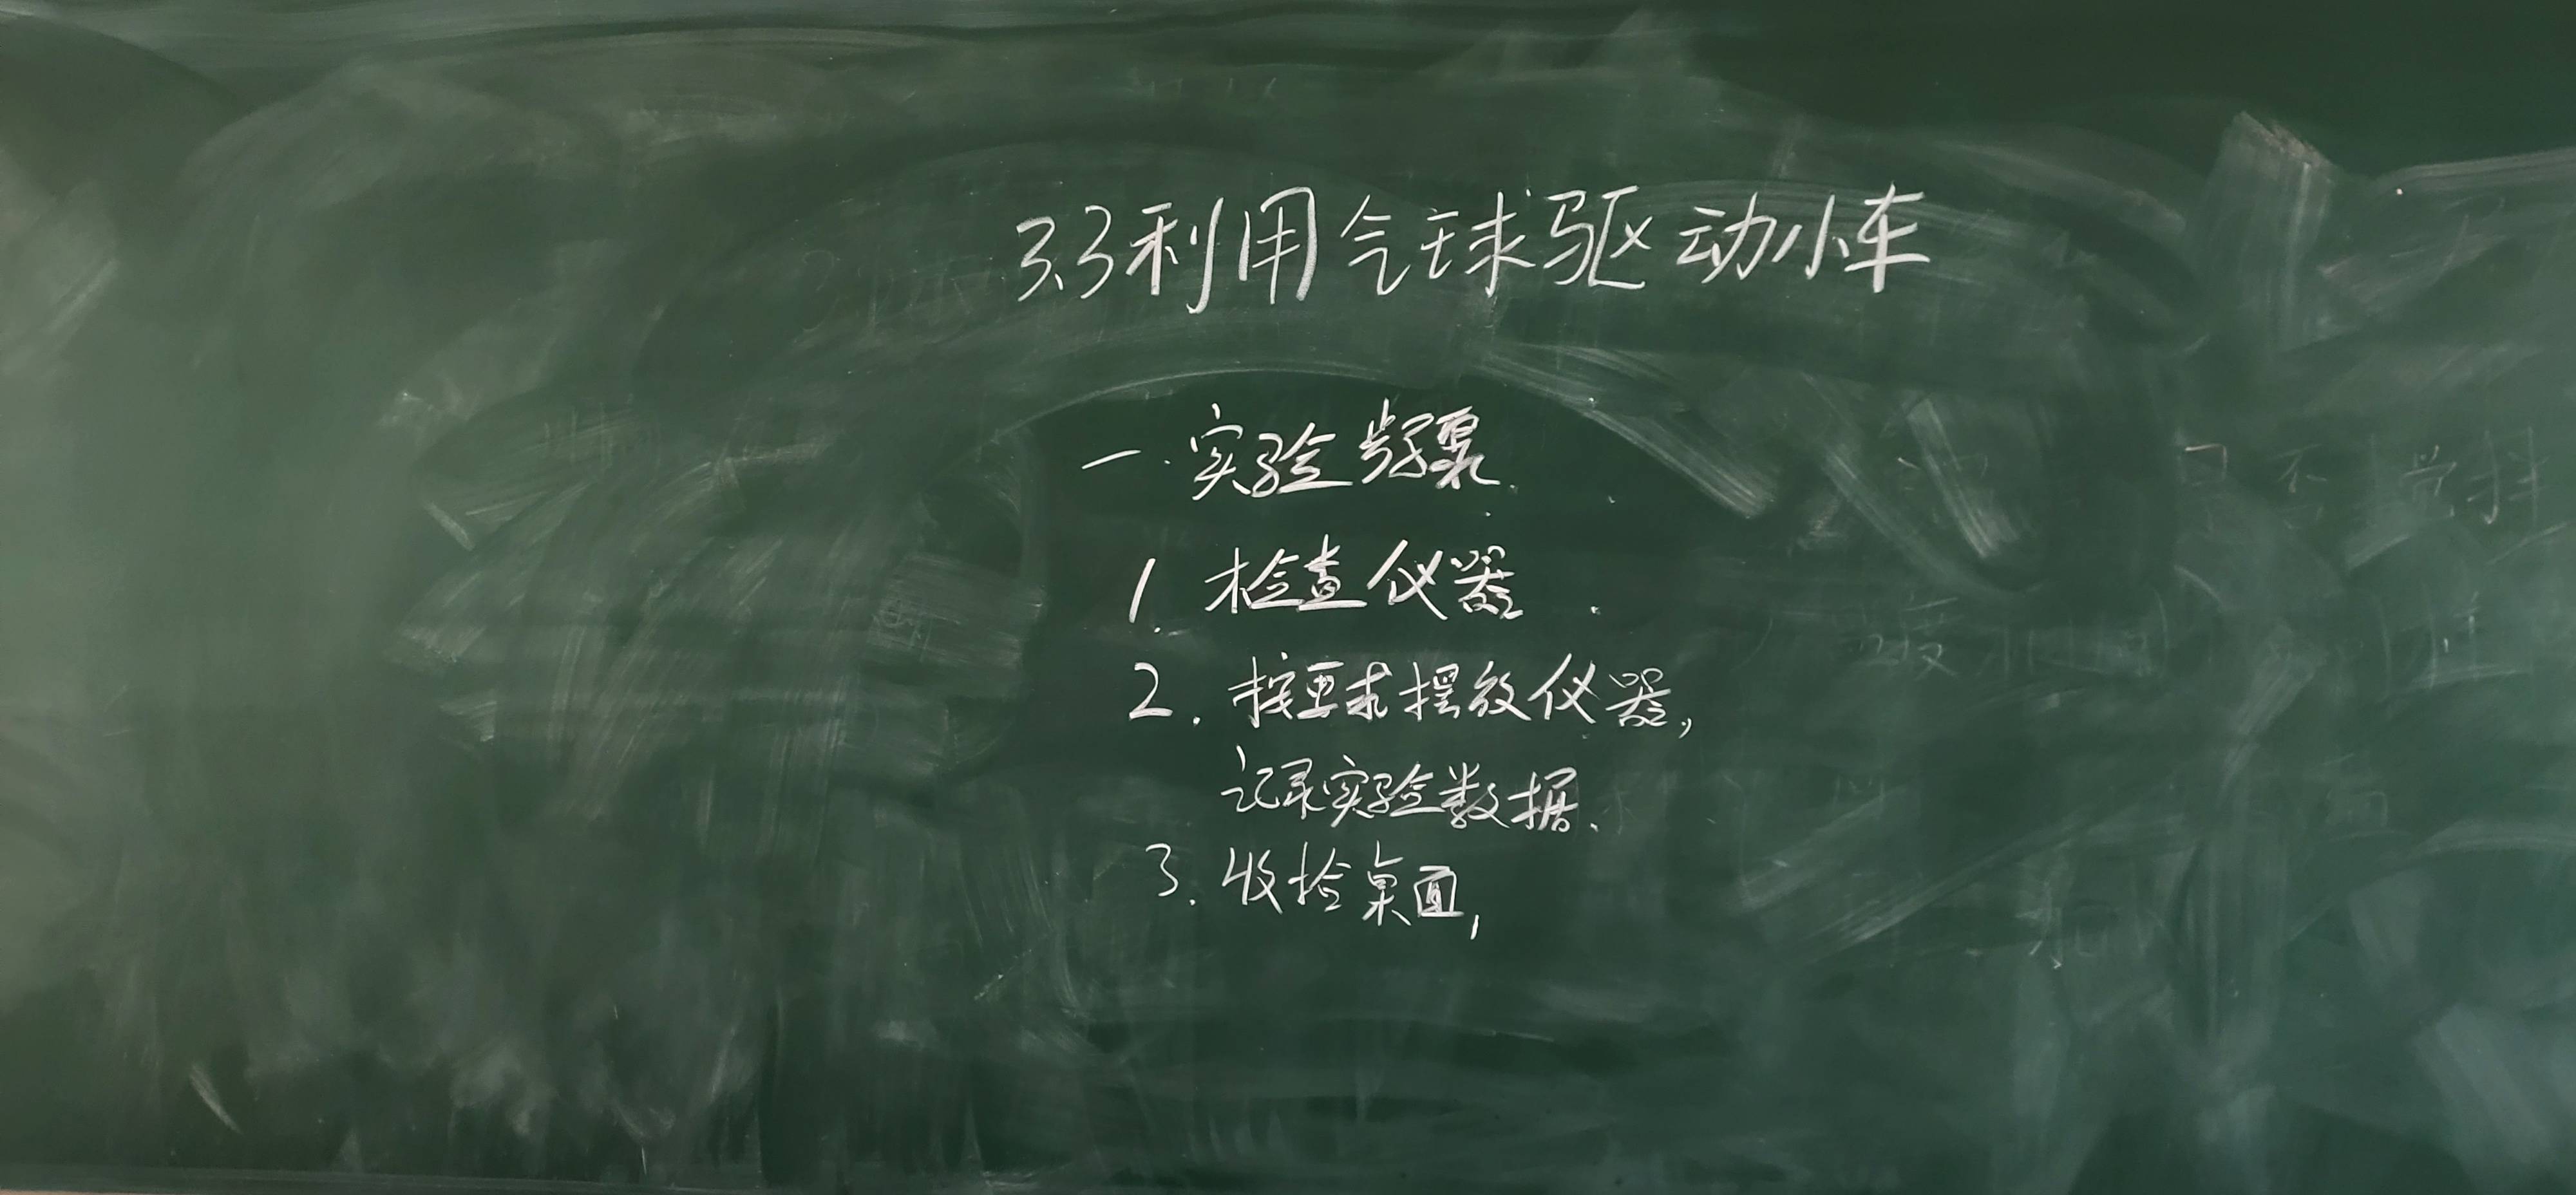 3.3利用气球驱动小车
一.实验步骤.
1. 检查仪器.
2. 按要求摆放仪器,
记录实验数据.
3. 收捡桌面,